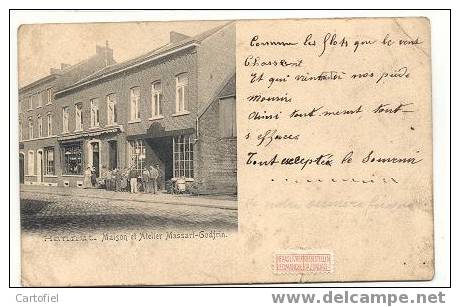 Comme les flots que le vent
Chassent
Et qui viennent nos pieds
Mourir
Ainsi tout meurt tout
s'effaces
Tout exceptée le Souvenir
Hannut. Maison et Atelier Massart-Godfrin.
Cartofiel
www.delcampe.net